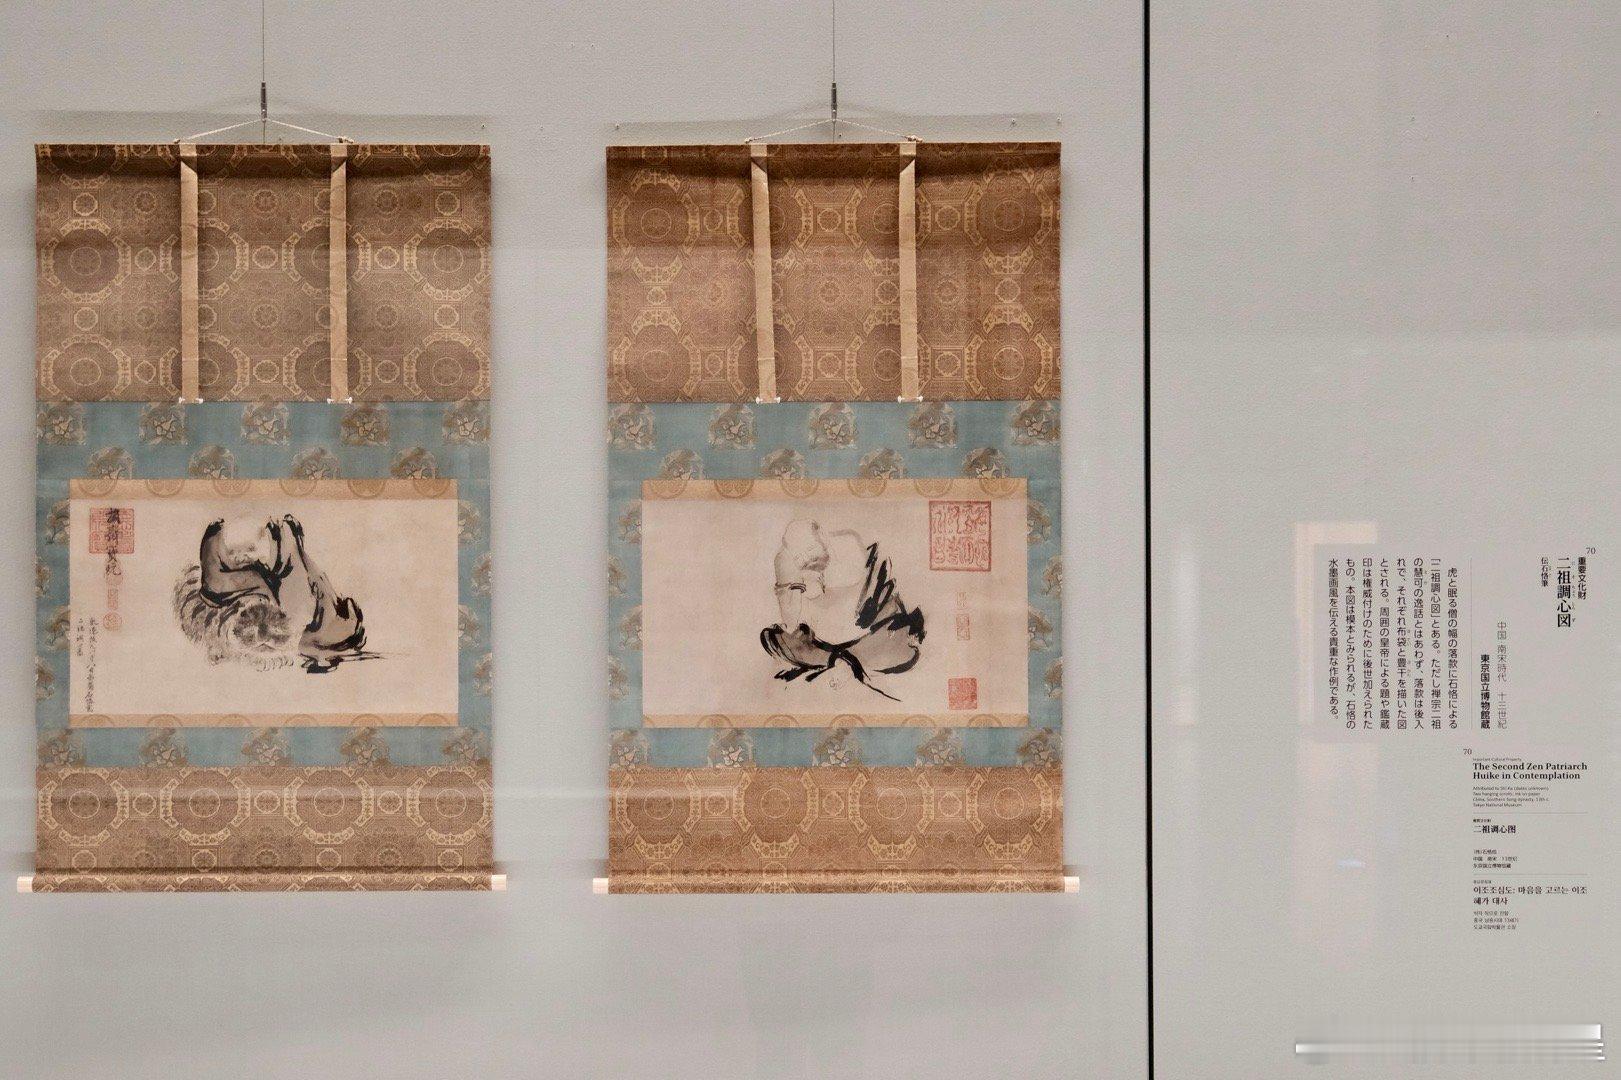 70
重要文化財
二祖調心図
伝石恪筆
中国 南宋時代 十三世紀
東京国立博物館蔵
虎と眠る僧の幅の落款に石恪による
「二祖調心図」とある。ただし禅宗二祖
の慧可の逸話とはあわず、落款は後入
れで、それぞれ布袋と豊干を描いた図
とされる。周囲の皇帝による題や鑑蔵
印は権威付けのために後世加えられた
もの。本図は模本とみられるが、石恪の
水墨画風を伝える貴重な作例である。
70
Important Cultural Property
The Second Zen Patriarch
Huike in Contemplation
Attributed to Shi Ke (dates unknown)
Two hanging scrolls; ink on paper
China, Southern Song dynasty, 13th c.
Tokyo National Museum
二祖调心图
(传)石恪绘
中国 南宋 13世纪
东京国立博物馆藏
이조조심도: 마음을 고르는 이조
혜가 대사
중국 남송시대 13세기
도쿄국립박물관 소장